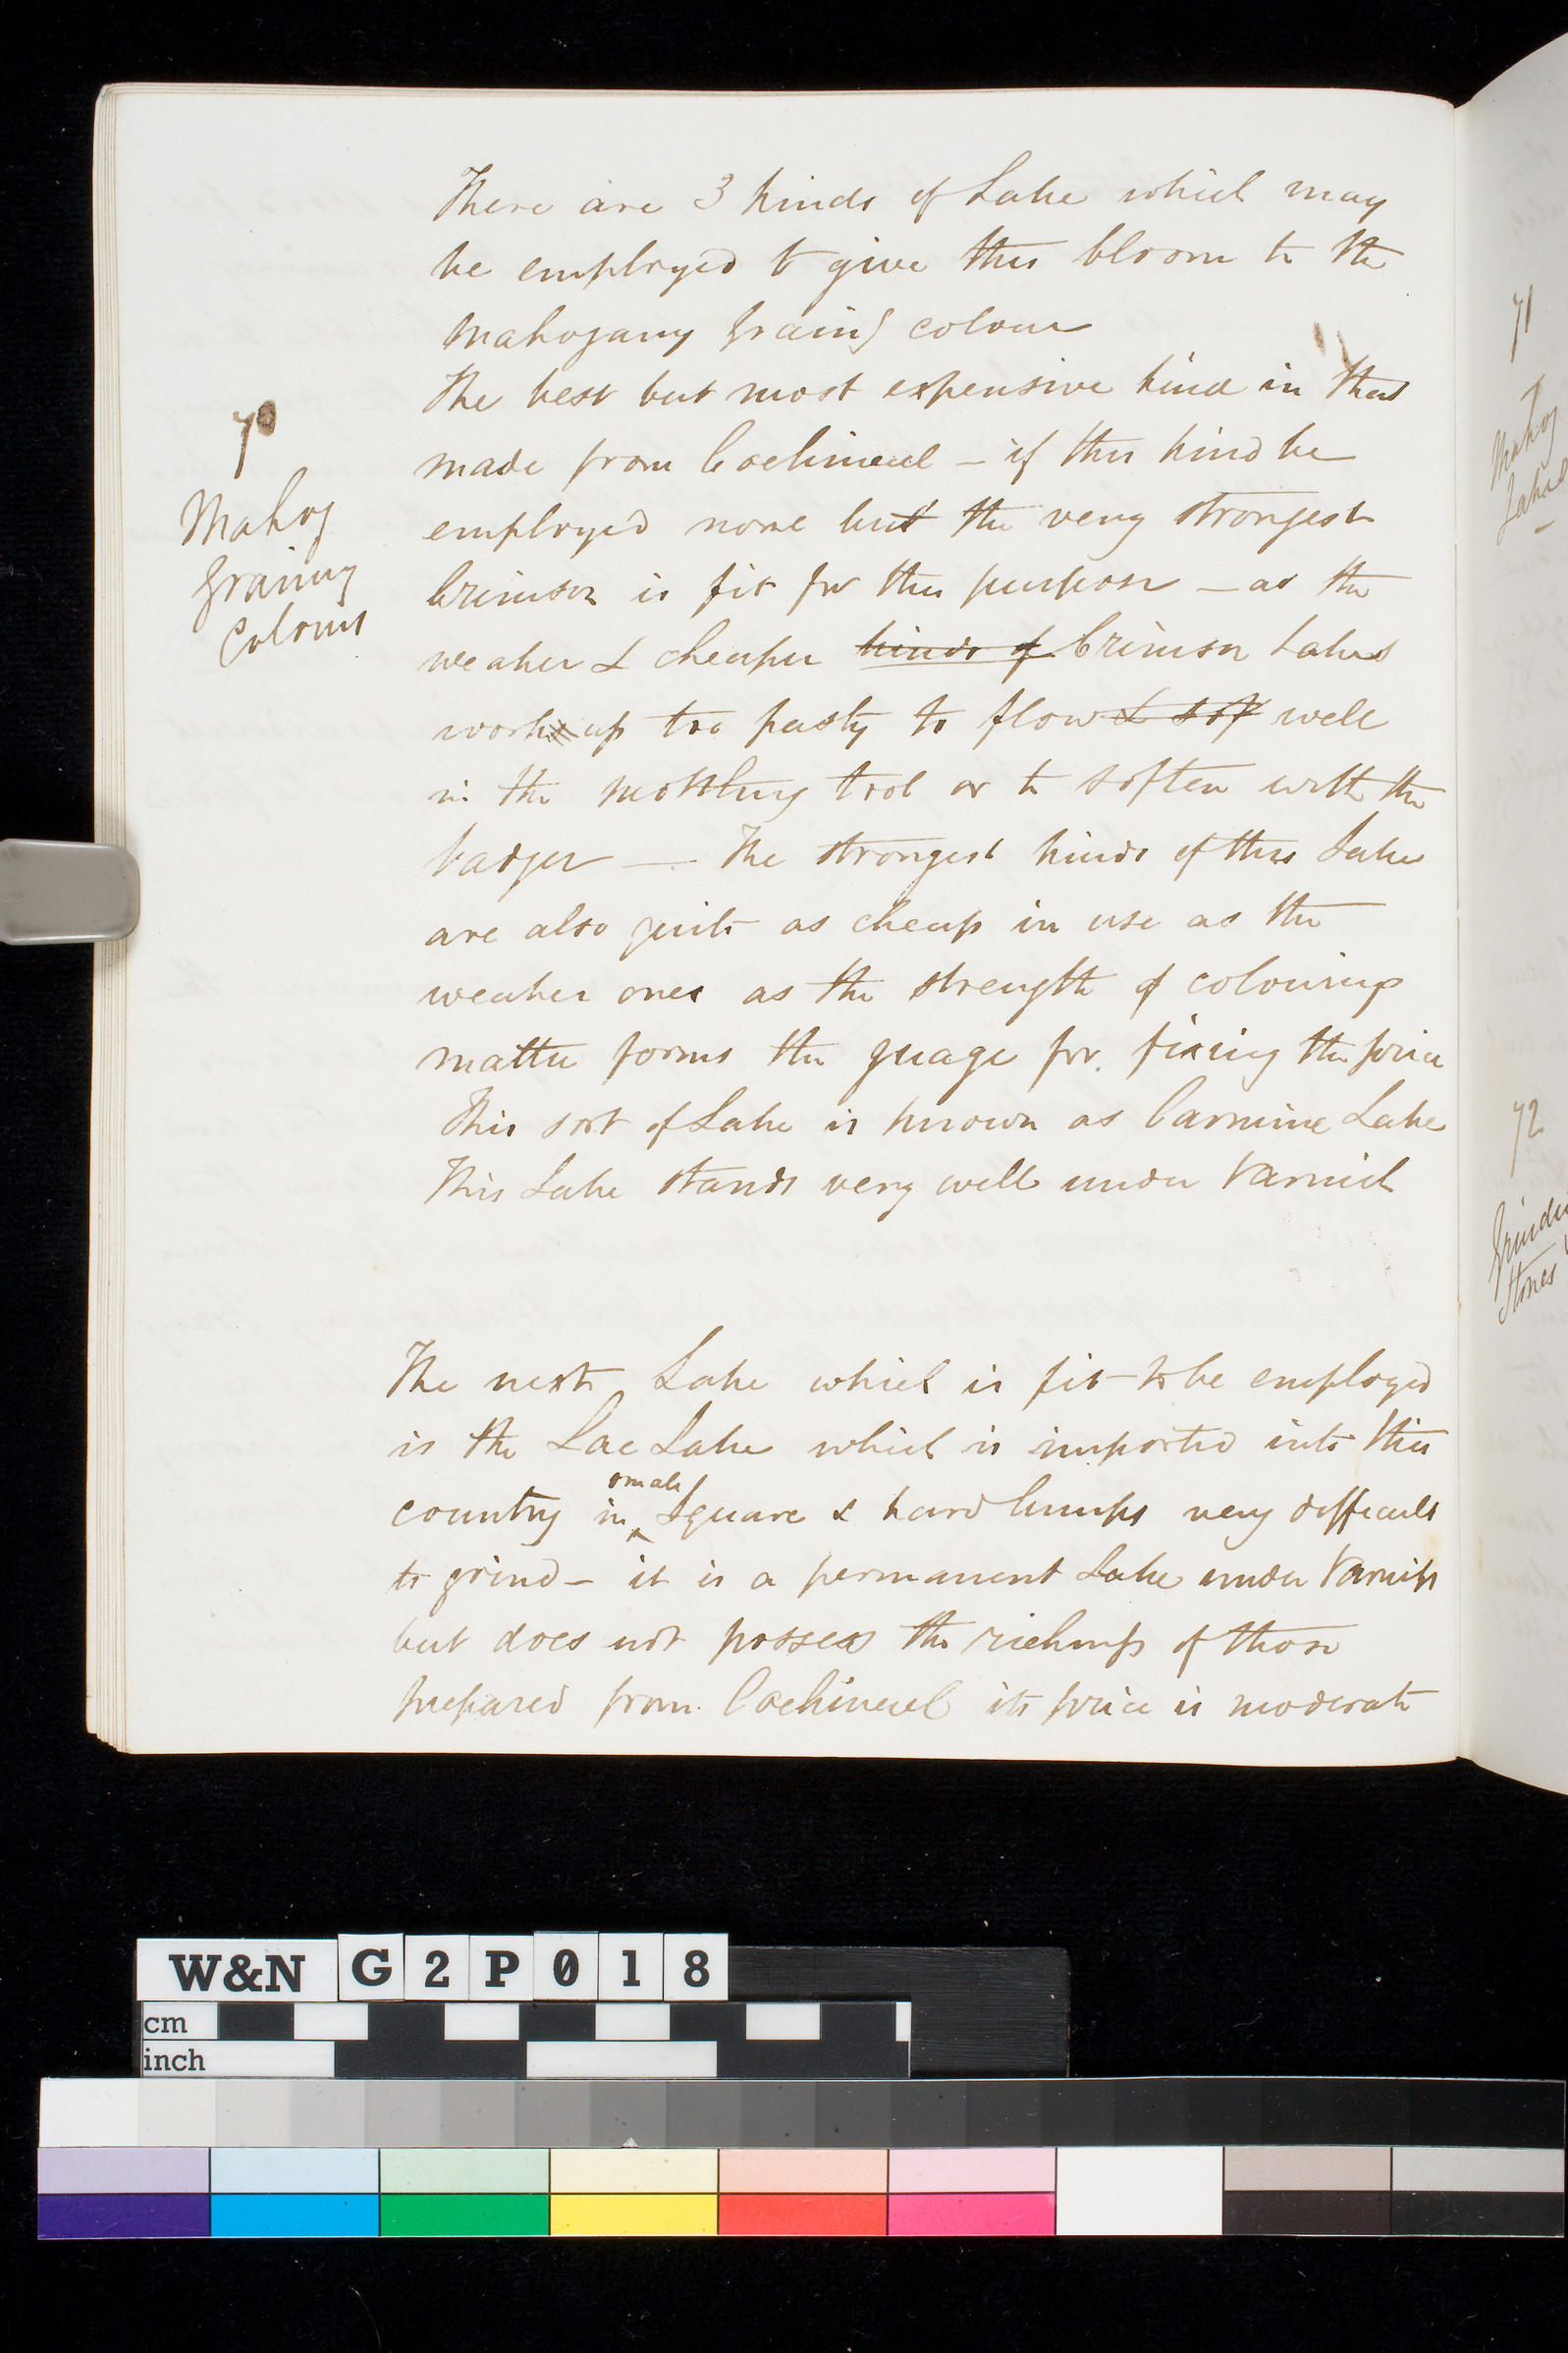 There are 3 kinds of Lake which may
be employed to give this bloom to the
Mahogany Graing colour
70
The best but most expensive kind in that
made from Cochineal - if this kind be
Mahog
Graining
Colours
employed none but the very strongest
Crimson is fit for this purpose - as the
weaker & cheaper kinds of Crimson Lakes
works up too pasty to flow & sof well
in the mottling tool or to soften with the
badger — The strongest kinds of this Lake
are also quite as cheap in use as the
weaker ones as the strength of colouring
matter forms the guage for fixing the price
This sort of Lake is known as Carmine Lake
This Lake stands very well under Varnish
The next Lake which is fit to be employed
is the Lac Lake which is imported into this
country in small Square & hard lumps very difficult
to grind - it is a permanent Lake under Varnish
but does not possess the richness of those
prepared from Cochineal its price is moderate
71
Mahog
72
Stones
W&N G2P018
cm
inch